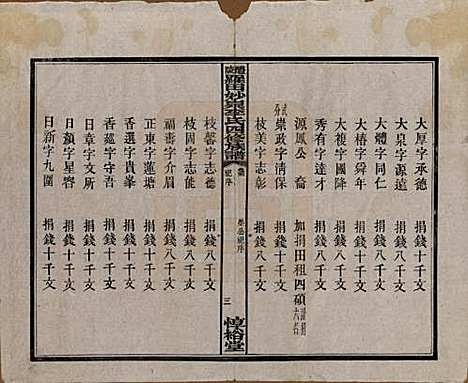 大厚字承德 捐錢十千文
大泉字源遠 捐錢八千文
大體字同仁 捐錢八千文
大椿字舜年 捐錢八千文
大複字國降 捐錢八千文
秀有字達才 捐錢八千文
源鳳公裔 加捐田租四碩
崇政字清保 捐錢八千文
枝美字志彰 捐錢八千文
羅田妙泉李氏四修族譜
三
惇裕堂
枝馨字志德 捐錢八千文
枝固字志定 捐錢八千文
福壽字介眉 捐錢八千文
正東字蓮塘 捐錢十千文
香選字貴峯 捐錢十千文
香筵字守吾 捐錢十千文
日章字文所 捐錢十千文
日顏字星容 捐錢十千文
日新字九圍 捐錢十千文